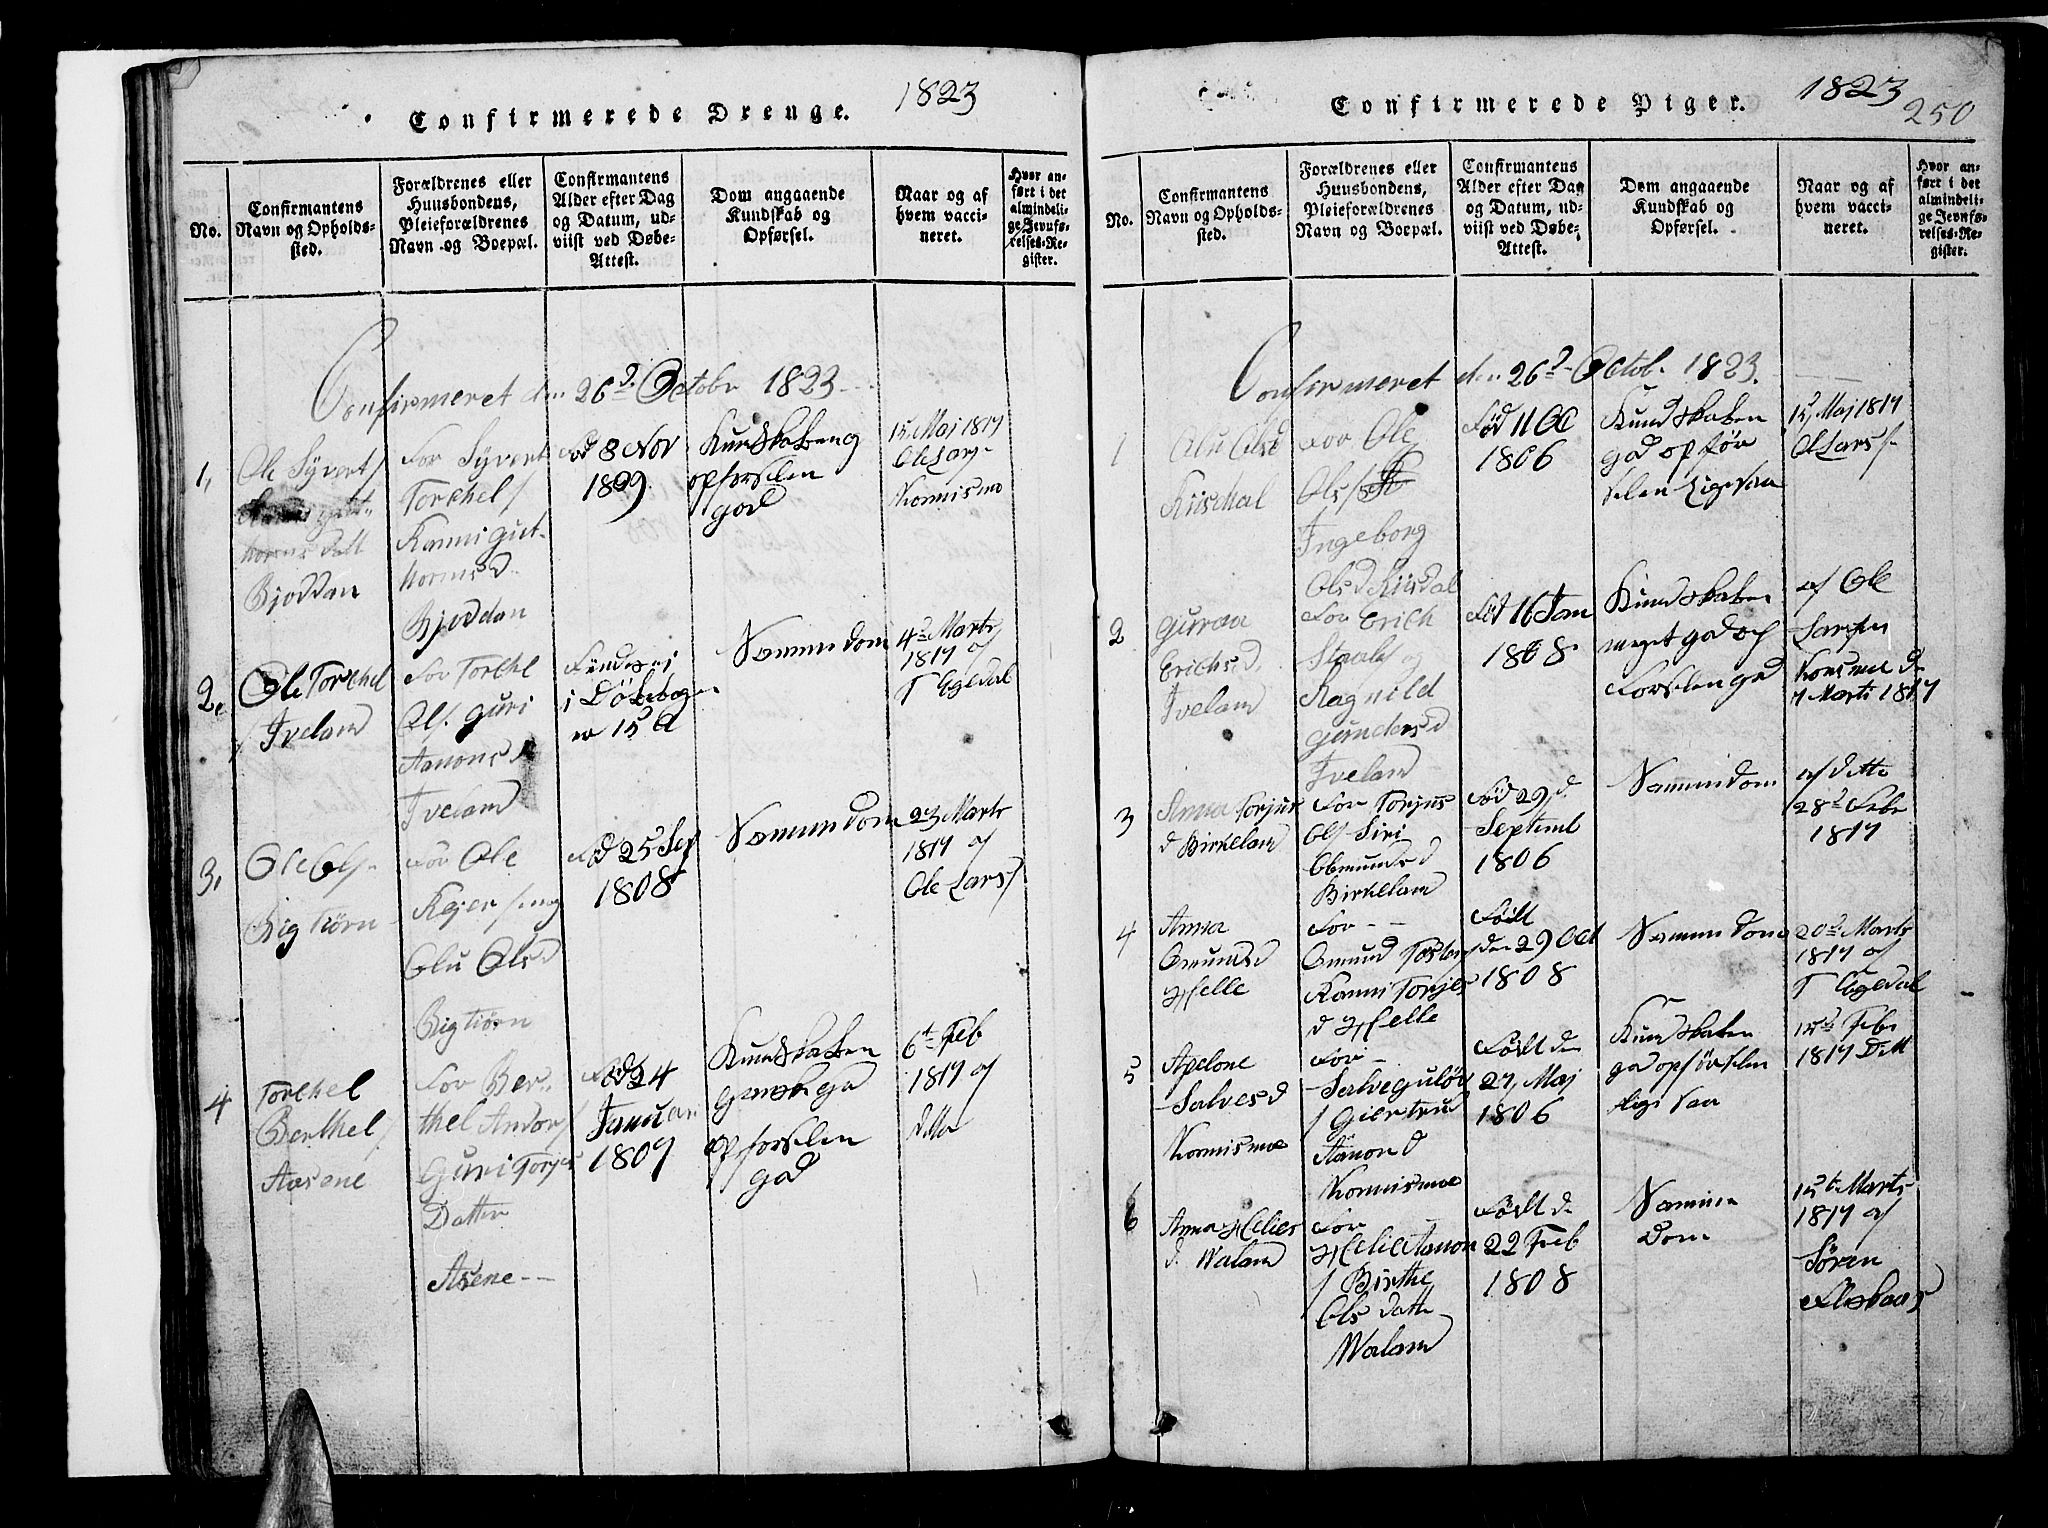 1823
Confirmerede Drenge.
No.
Confirmantens
Navn og Opholds-
sted.
Forældrenes eller
Huusbondens,
Pleieforældrenes
Navn og Boepæl.
Confirmantens
Alder efter Dag
og Datum, ud-
viist ved Døbe-
Attest.
Dom angaaende
Kundskab og
Opførsel.
Naar og af
hvem vacci-
neret.
Hvor an-
ført i det
almindeli-
ge Jevnfø-
relses-Re-
gister.
Confirmeret den 26d Octobr 1823
1,
Ole Syvert/
Bjoddan
For Syvert
Torchel/
Kanni gut-
hormsd.
Bjoddan
Fød 8 Nov
1809
Kundskaben og
opførselen
god
15 Maj 1817
Ole Lars-
Konnismo
2.
Ole Torchel
/ Iveland
For Torchel
Ols. guri
Aanonsd
Iveland
i Döbebogen
er 15 A
Samme dom
4d Marts
1817 af
T Egedal
3,
Ole Ols-
Rigtiørn
For Ole
Rejer/en og
Olu Olsd
Rigtiørn
Fød 25 Sep
1808
Samme dom
23 Marts
1817 af
Ole Lars/
4
Torchel
Berthel/
Aasene
For Ber-
thel Andor/
Guri Torjes
Datter
Asene --
Fød 24
Januari
1807
Kundskaben
ganske god
opførselen
god
6t Feb
1817 af
ditto
1823
250
Confirmerede Piger.
No.
Confirmantens
Navn og Opholds-
sted.
Forældrenes eller
Huusbondens,
Pleieforældrenes
Navn og Boepæl.
Confirmantens
Alder efter Dag
og Datum, ud-
viist ved Døbe-
Attest.
Dom angaaende
Kundskab og
Opførsel.
Naar og af
hvem vacci-
neret.
Hvor an-
ført i det
almindeli-
ge Jevnfø-
relses-Re-
gister.
Confirmeret den 26d Octob. 1823.
1
Olu Olsd
For Ole
Ols/
Ingeborg
Olsd Riisdal
Fød 11 Oc
1806
Kundskaben
god opfør
selen ligesaa
15 Maj 1817
O Lars/-
2
Guroa
Erichsd.
Iveland
For Erich
Staals og
Ragnild
gundersd
Iveland
Fød 16 Jan
1808
Kundskaben
meget god op
førslen god
af Ole
Larsen
Konsmo d
7 Marts 1817
3
Anna Torjus
d Birkeland
For Torjus
Ols- Siri
Omundsd
Birkeland
Fød 29 d.
Septemb
1806
Samme dom
af ditto
28d Febr
1817
4
Anna
Omundsd
Helle
For - -
Omund Tosten/
Kanni Torjes
d Helle
Født
den 29 Oct
1808
Samme dom
20d Marts
1817 af
T Egedal
5
Apelone
Salvesd
Konnismoe
For -
Salve guløv
/ Giertrud
Aanond
Konnismoe
Født de
27 Maj
1806
Kundskaben
god opførselen
ligesaa
15d Feb
1817 Ditt
6
Anna Helies
d. Waland
For
Helie Aanon
/ Birthe
Ols datter
Waland
Født de
22 Feb
1808
Samme
dom
15t Marts
1817 af
Søren